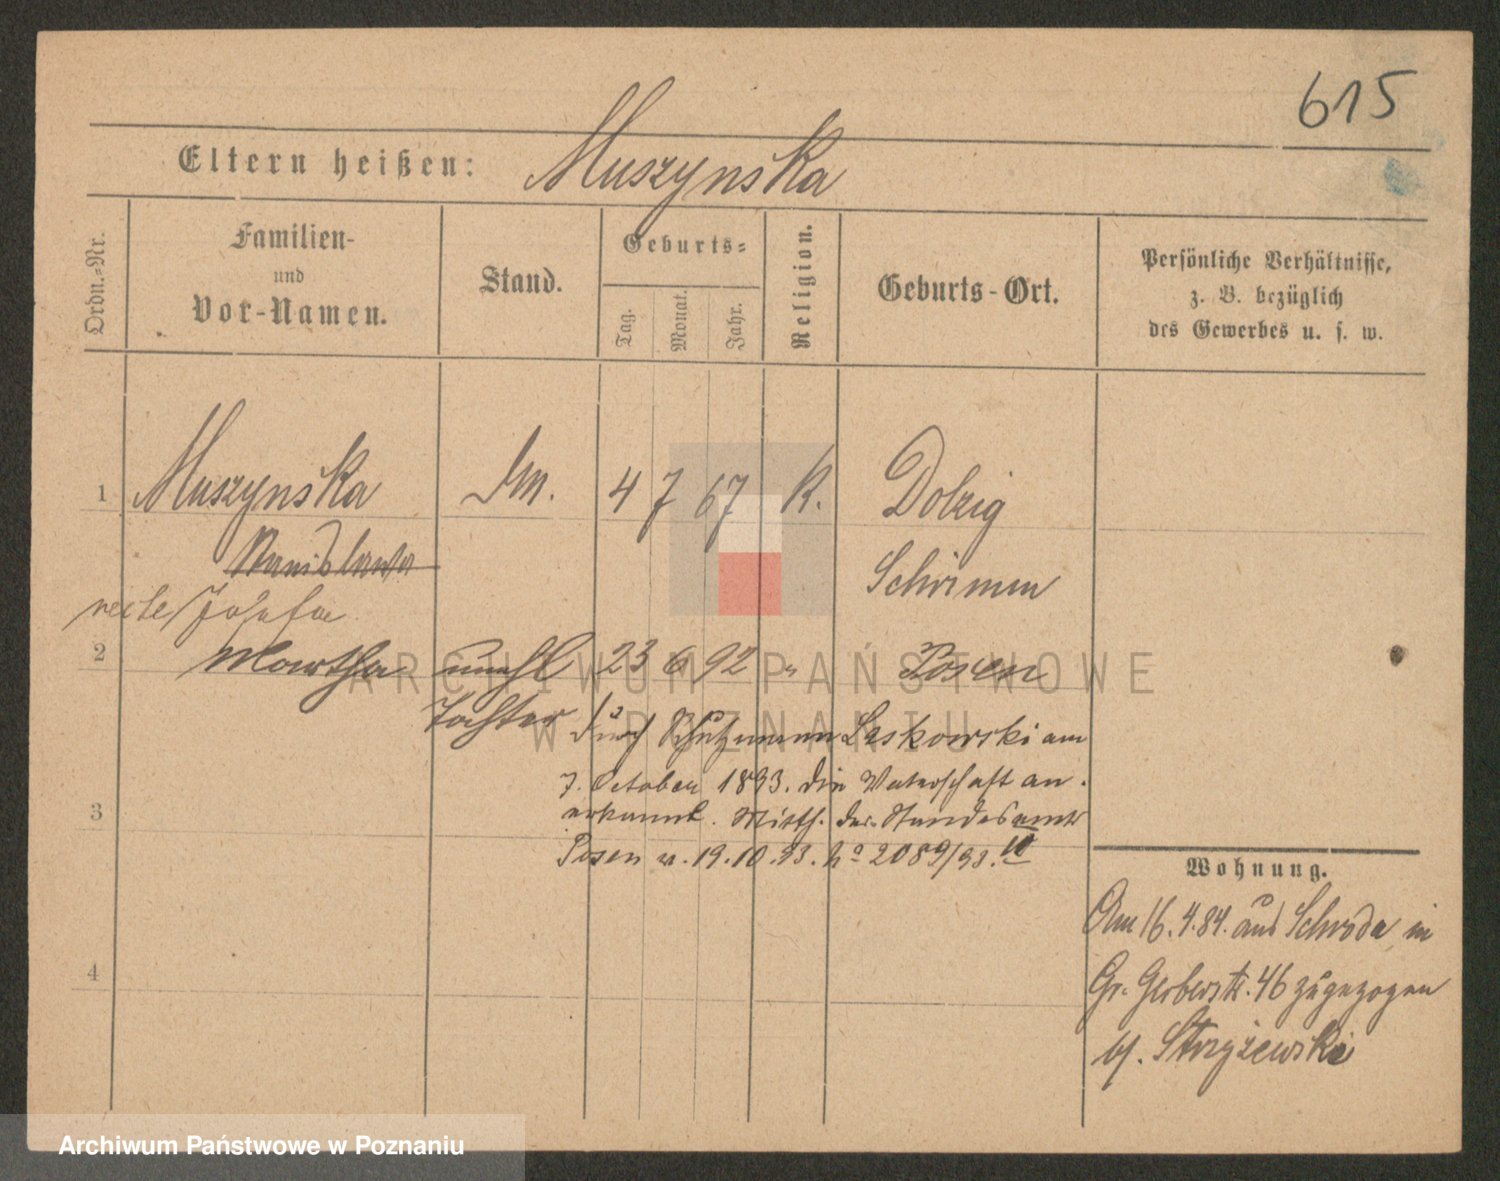 615
Eltern heißen: Muszynska
Ordn.-Nr.
Familien-
und
Vor-Namen.
Stand.
Geburts-
Tag.
Monat.
Jahr.
Religion.
Geburts-Ort.
Persönliche Verhältnisse,
z. B. bezüglich
des Gewerbes u. s. w.
1 Muszynska 4 7 67 K. Dolzig
Stanislawa Schrimm
recte Josefa
2 Martha unehl 23 6 92 " Posen
Tochter
durch Schutzmann Leskowski am
7. October 1893. die Vaterschaft an-
erkannt. Mitth. des Standesamts
Posen v. 19.10.93. No 2089/93.
3
4
Wohnung.
Am 16.4.84. aus Schroda in
Gr. Gerberstr. 46 zugezogen
bf. Stryżewski
ARCHIWUM PAŃSTWOWE
W POZNANIU
Archiwum Państwowe w Poznaniu